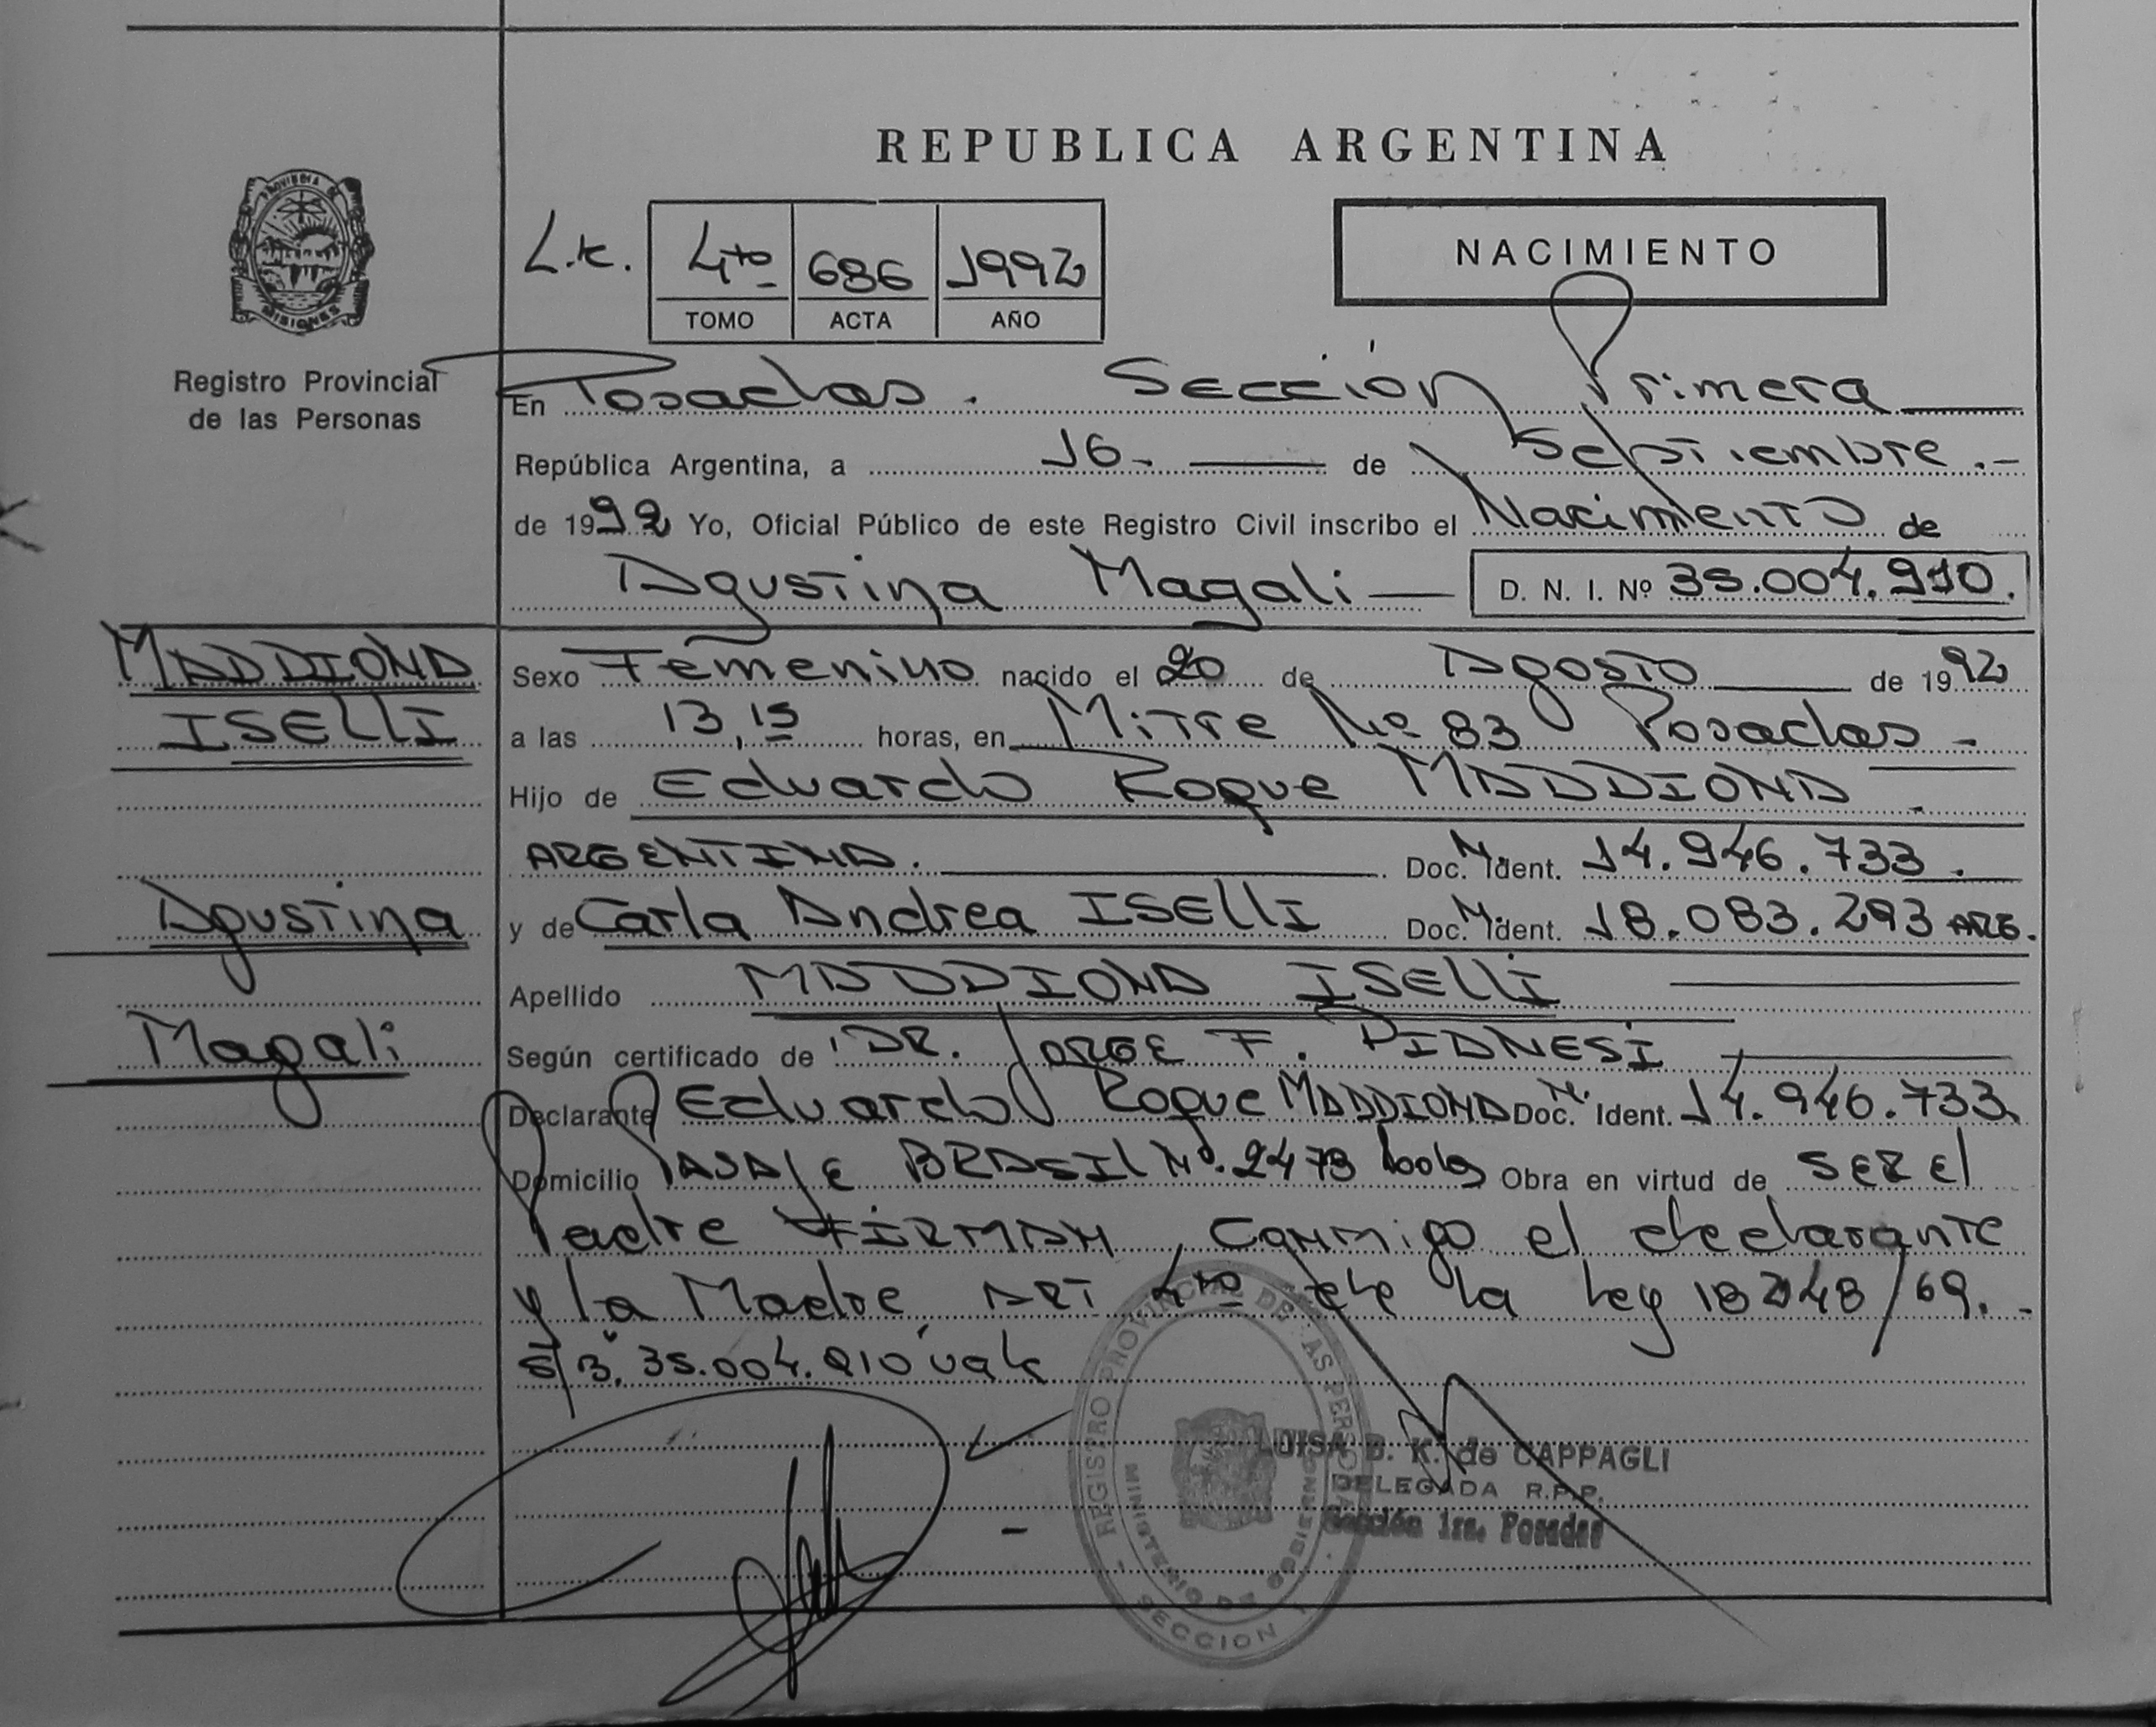 REPUBLICA ARGENTINA
PROVINCIA DE MISIONES
L.K. 4to 686 1992
TOMO ACTA AÑO
NACIMIENTO
Registro Provincial
de las Personas
En Posadas. Sección Primera
República Argentina, a 16. de Septiembre.-
de 1992 Yo, Oficial Público de este Registro Civil inscribo el Nacimiento de
Agustina Magali D. N. I. Nº 35.004.910.
MADDIONA
ISELLI
Agustina
Magali
Sexo Femenino nacido el 20 de Agosto de 1992
a las 13,15 horas, en Mitre Nº 83 Posadas -
Hijo de Eduardo Roque MADDIONA.
ARGENTINA. Doc. N. Ident. 14.946.733.
y de Carla Andrea ISELLI Doc. N. Ident. 18.083.293 ARG.
Apellido MADDIONA ISELLI
Según certificado de DR. JORGE F. PIANESI
Declarante Eduardo Roque MADDIONA Doc. N. Ident. 14.946.733
Domicilio PASAJE BRASIL Nº. 2473 Obra en virtud de SER El
Padre FIRMAN, Conmigo el declarante
y la Madre ART 4to de la Ley 18248/69.-
S/B. 35.004.910 vale
REGISTRO PROVINCIAL DE LAS PERSONAS
MINISTERIO DE GOBIERNO
SECCION 1
LUISA B. K. de CAPPAGLI
DELEGADA R.P.P.
Sección 1ra. Posadas